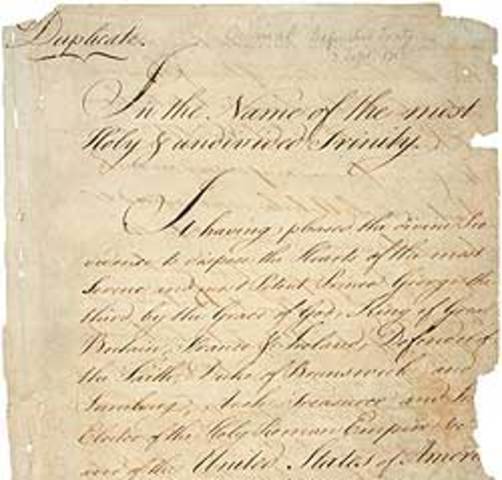 Duplicate.
Original Definitive Treaty
3 Sept. 1783
In the Name of the most
Holy & undivided Trinity.
It having pleased the divine Pro
vidence to dispose the Hearts of the most
Serene and most Potent Prince George the
third, by the Grace of God, King of Great
Britain, France & Ireland, Defender of
the Faith, Duke of Brunswick and
Lunebourg, Arch Treasurer and
Elector of the Holy Roman Empire &c
and of the United States of Ameri